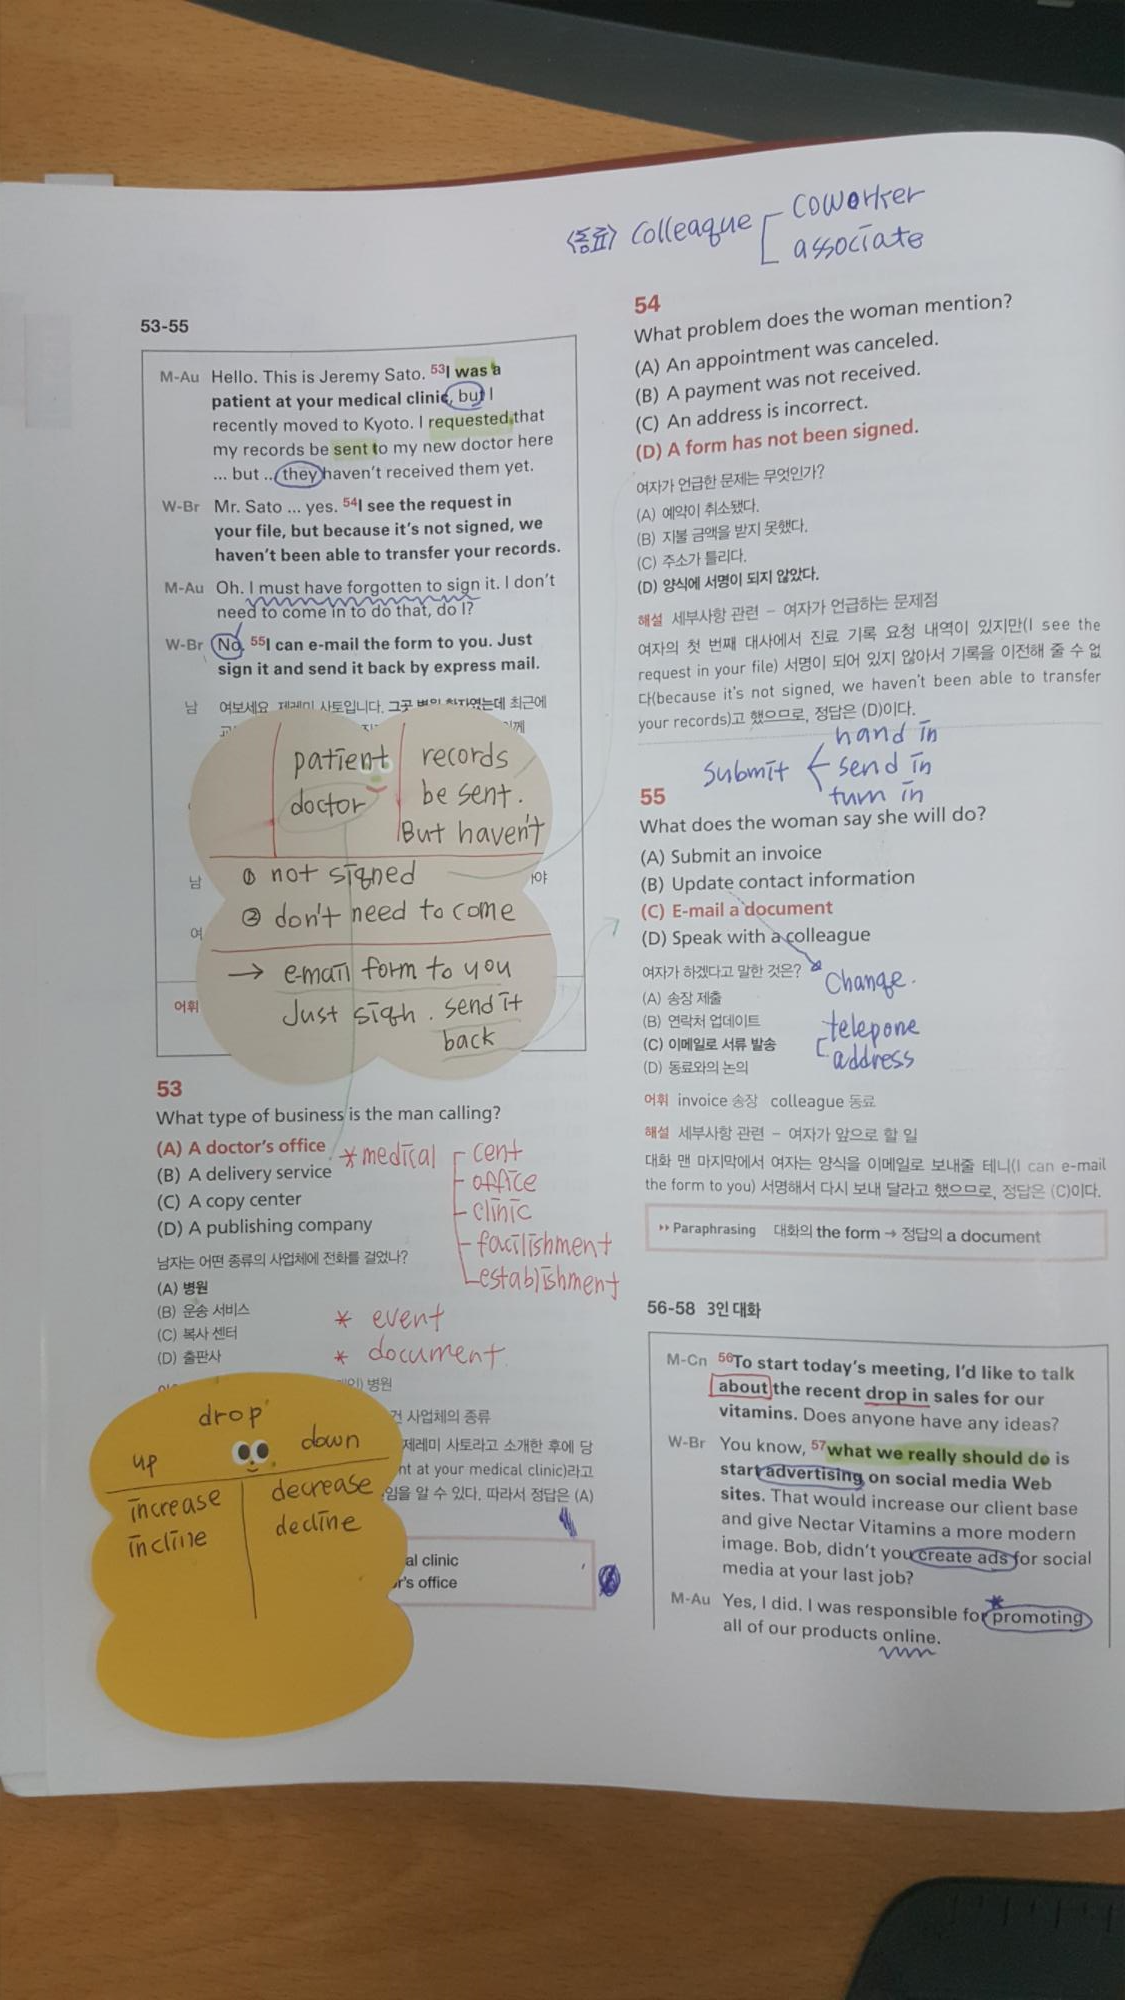 <동료> colleaque coworker
associate
53-55
M-Au Hello. This is Jeremy Sato. 53I was a
patient at your medical clinic, but I
recently moved to Kyoto. I requested that
my records be sent to my new doctor here
... but ... they haven't received them yet.
W-Br Mr. Sato ... yes. 54I see the request in
your file, but because it's not signed, we
haven't been able to transfer your records.
M-Au Oh. I must have forgotten to sign it. I don't
need to come in to do that, do I?
W-Br No. 55I can e-mail the form to you. Just
sign it and send it back by express mail.
남 여보세요. 제레미 사토입니다. 그곳 병원 환자였는데 최근에
patient records
doctor be sent.
But haven't
남
① not signed
② don't need to come
여
→ e-mail form to you
어휘
Just sigh. send it
back
53
What type of business is the man calling?
(A) A doctor's office
(B) A delivery service
(C) A copy center
(D) A publishing company
* medical cent
office
clinic
facilishment
establishment
남자는 어떤 종류의 사업체에 전화를 걸었나?
(A) 병원
(B) 운송 서비스
(C) 복사 센터
(D) 출판사
* event
* document
병원
drop
up down
increase decrease
incline decline
사업체의 종류
제레미 사토라고 소개한 후에 당
nt at your medical clinic)라고
임을 알 수 있다. 따라서 정답은 (A)
al clinic
r's office
54
What problem does the woman mention?
(A) An appointment was canceled.
(B) A payment was not received.
(C) An address is incorrect.
(D) A form has not been signed.
여자가 언급한 문제는 무엇인가?
(A) 예약이 취소됐다.
(B) 지불 금액을 받지 못했다.
(C) 주소가 틀리다.
(D) 양식에 서명이 되지 않았다.
해설 세부사항 관련 – 여자가 언급하는 문제점
여자의 첫 번째 대사에서 진료 기록 요청 내역이 있지만(I see the
request in your file) 서명이 되어 있지 않아서 기록을 이전해 줄 수 없
다(because it's not signed, we haven't been able to transfer
your records)고 했으므로, 정답은 (D)이다.
submit hand in
send in
turn in
55
What does the woman say she will do?
(A) Submit an invoice
(B) Update contact information
(C) E-mail a document
(D) Speak with a colleague
change.
telepone
address
여자가 하겠다고 말한 것은?
(A) 송장 제출
(B) 연락처 업데이트
(C) 이메일로 서류 발송
(D) 동료와의 논의
어휘 invoice 송장 colleague 동료
해설 세부사항 관련 – 여자가 앞으로 할 일
대화 맨 마지막에서 여자는 양식을 이메일로 보내줄 테니(I can e-mail
the form to you) 서명해서 다시 보내 달라고 했으므로, 정답은 (C)이다.
▸▸ Paraphrasing 대화의 the form → 정답의 a document
56-58 3인 대화
M-Cn 56To start today's meeting, I'd like to talk
about the recent drop in sales for our
vitamins. Does anyone have any ideas?
W-Br You know, 57what we really should do is
start advertising on social media Web
sites. That would increase our client base
and give Nectar Vitamins a more modern
image. Bob, didn't you create ads for social
media at your last job?
M-Au Yes, I did. I was responsible for promoting
all of our products online.